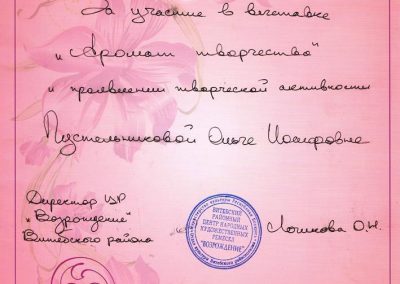 За участие в выставке
"Аромат творчества"
и проявлении творческой активности
Пустельниковой Ольге Иосифовне
Директор ЦР
"Возрождение"
Витебского района
ВИТЕБСКИЙ
РАЙОННЫЙ
ЦЕНТР НАРОДНЫХ
ХУДОЖЕСТВЕННЫХ
РЕМЕСЕЛ
"ВОЗРОЖДЕНИЕ"
Логинова О.Н.